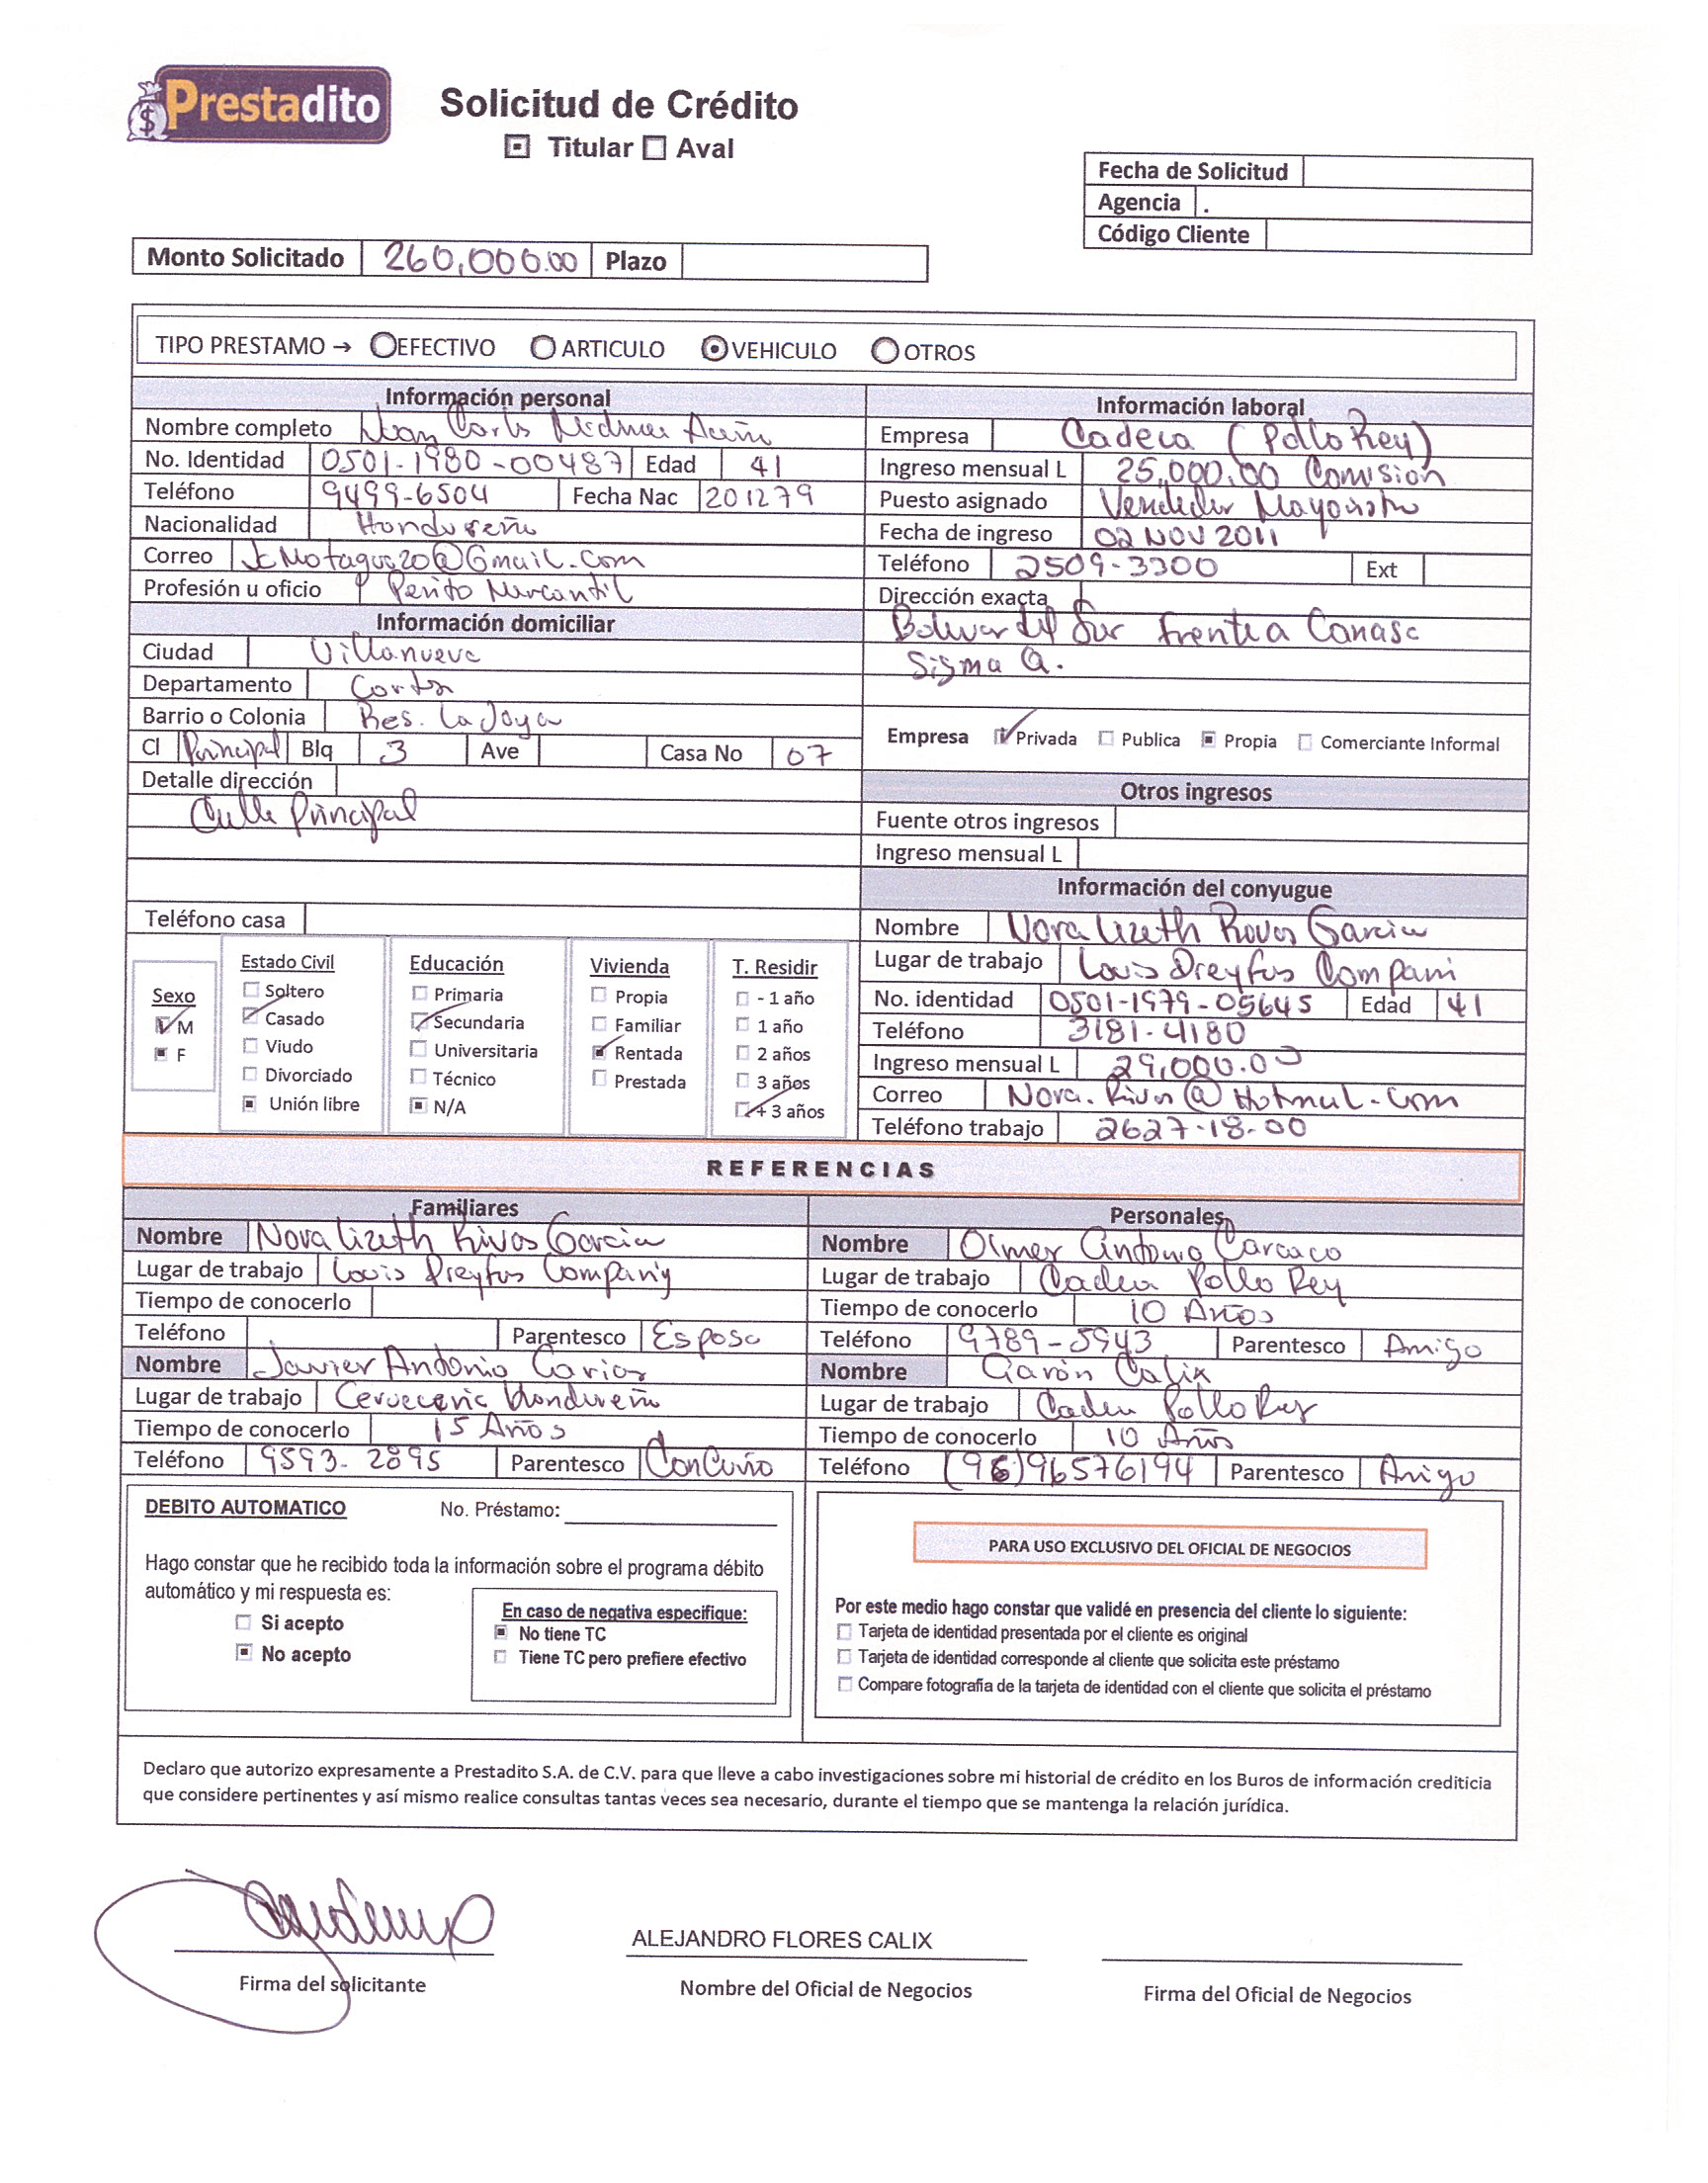 Prestadito
Solicitud de Crédito
Titular Aval
Fecha de Solicitud
Agencia .
Código Cliente
Monto Solicitado 260,000.00 Plazo
TIPO PRESTAMO → EFECTIVO ARTICULO VEHICULO OTROS
Información personal
Nombre completo Juan Carlos
No. Identidad 0501-1980-00487 Edad 41
Teléfono 9499-6504 Fecha Nac 201279
Nacionalidad Hondureño
Correo JcMotagua20@Gmail.com
Profesión u oficio Perito Mercantil
Información domiciliar
Ciudad Villanueva
Departamento Cortes
Barrio o Colonia Res. La Joya
Cl Principal Blq 3 Ave Casa No 07
Detalle dirección
Calle Principal
Teléfono casa
Sexo
M
F
Estado Civil
Soltero
Casado
Viudo
Divorciado
Unión libre
Educación
Primaria
Secundaria
Universitaria
Técnico
N/A
Vivienda
Propia
Familiar
Rentada
Prestada
T. Residir
- 1 año
1 año
2 años
3 años
+ 3 años
Información laboral
Empresa Cadeca (Pollo Rey)
Ingreso mensual L 25,000.00 Comision
Puesto asignado Vendedor Mayorista
Fecha de ingreso 02 NOV 2011
Teléfono 2509-3300 Ext
Dirección exacta
Bolivar del Sur Frente a
Sigma Q.
Empresa Privada Publica Propia Comerciante Informal
Otros ingresos
Fuente otros ingresos
Ingreso mensual L
Información del conyugue
Nombre Nora Lizeth Rivas Garcia
Lugar de trabajo Louis Dreyfus Compani
No. identidad 0501-1979-05645 Edad 41
Teléfono 3181-4180
Ingreso mensual L 29,000.00
Correo Nora.Rivas@Hotmail.com
Teléfono trabajo 2627-18-00
REFERENCIAS
Familiares
Nombre Nora Lizeth Rivas Garcia
Lugar de trabajo Louis Dreyfus Company
Tiempo de conocerlo
Teléfono Parentesco Esposa
Nombre Javier Antonio
Lugar de trabajo Cerveceria Hondureña
Tiempo de conocerlo 15 Años
Teléfono 9593-2895 Parentesco ConCuño
Personales
Nombre Olmer Antonio
Lugar de trabajo Cadeca Pollo Rey
Tiempo de conocerlo 10 Años
Teléfono 9789-5943 Parentesco Amigo
Nombre Calix
Lugar de trabajo Cadeca Pollo Rey
Tiempo de conocerlo 10 Años
Teléfono (96)96576194 Parentesco Amigo
DEBITO AUTOMATICO No. Préstamo:
Hago constar que he recibido toda la información sobre el programa débito
automático y mi respuesta es:
Si acepto
No acepto
En caso de negativa especifique:
No tiene TC
Tiene TC pero prefiere efectivo
PARA USO EXCLUSIVO DEL OFICIAL DE NEGOCIOS
Por este medio hago constar que validé en presencia del cliente lo siguiente:
Tarjeta de identidad presentada por el cliente es original
Tarjeta de identidad corresponde al cliente que solicita este préstamo
Compare fotografía de la tarjeta de identidad con el cliente que solicita el préstamo
Declaro que autorizo expresamente a Prestadito S.A. de C.V. para que lleve a cabo investigaciones sobre mi historial de crédito en los Buros de información crediticia
que considere pertinentes y así mismo realice consultas tantas veces sea necesario, durante el tiempo que se mantenga la relación jurídica.
Firma del solicitante
ALEJANDRO FLORES CALIX
Nombre del Oficial de Negocios
Firma del Oficial de Negocios